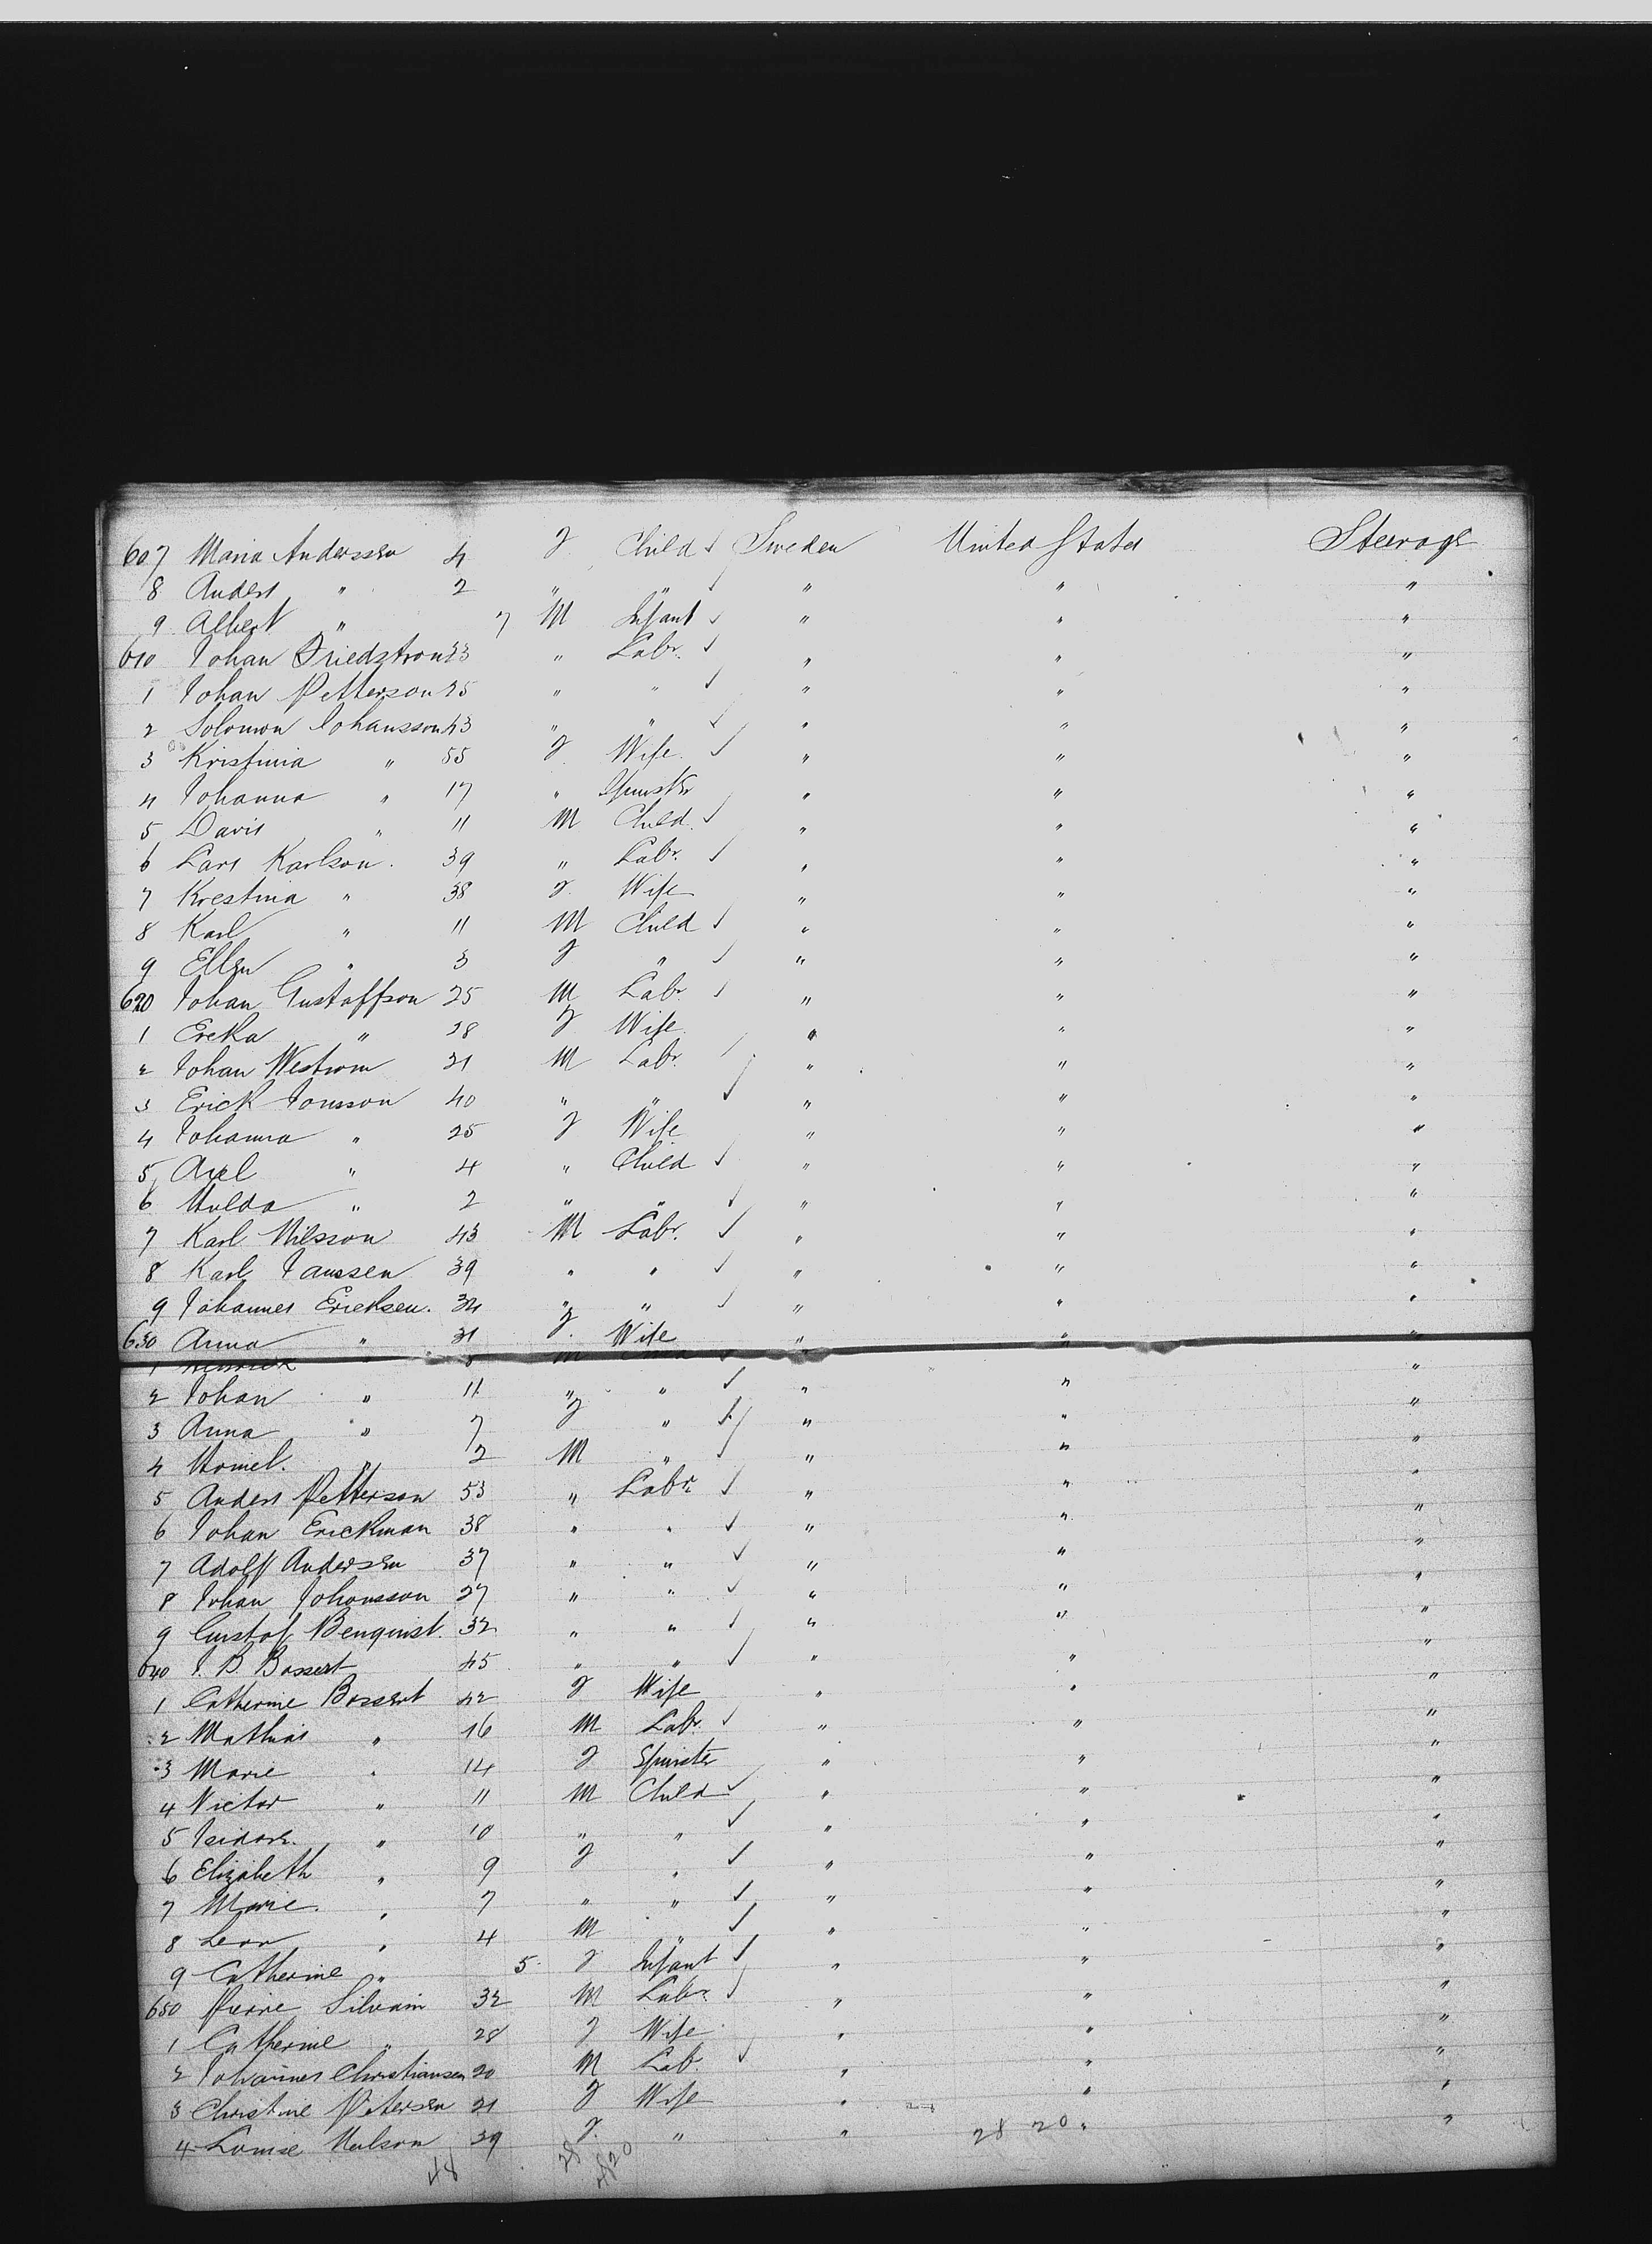 607 Maria Anderssen 4 F Child ✓ Sweden United States Steerage
8 Anders " 2 " " ✓ " " "
9 Albert " 7 M Infant ✓ " " "
610 Johan Friedstrom 23 " Labr. ✓ " " "
1 Johan Petterson 25 " " ✓ " " "
2 Solomon Johansson 43 " " ✓ " " "
3 Kristinia " 55 F. Wife ✓ " " "
4 Johanna " 17 " Spinster " " "
5 Davis " 11 M Child ✓ " " "
6 Lars Karlson. 39 " Labr. ✓ " " "
7 Krestina " 38 F. Wife " " "
8 Karl " 11 M Child ✓ " " "
9 Ellen " 3 F " ✓ " " "
620 Johan Gustaffson 25 M Labr ✓ " " "
1 Ereka " 28 F Wife " " "
2 Johan Westrom 21 M Labr. ✓ " " "
3 Erick Jonsson 40 " " ✓ " " "
4 Johanna " 25 F Wife " " "
5 Axel " 4 " Child ✓ " " "
6 Hulda " 2 " " ✓ " " "
7 Karl Nilsson 43 M Labr. ✓ " " "
8 Karl Janssen 39 " " ✓ " " "
9 Johannes Ericksen. 34 " " ✓ " " "
630 Anna " 31 F. Wife " " "
1 " M ✓ " "
2 Johan " 11 " " ✓ " " "
3 Anna " 7 F " ✓ " " "
4 " 2 M " ✓ " " "
5 Anders Petterson 53 " Labr. ✓ " " "
6 Johan Erickman 38 " " ✓ " " "
7 Adolf Anderssen 37 " " ✓ " " "
8 Johan Johansson 27 " " ✓ " " "
9 Gustof Benquist. 32 " " ✓ " " "
640 J. B. Bossert 45 " " ✓ " " "
1 Catherine Bossert 42 F Wife " " "
2 Mathias " 16 M Labr. ✓ " " "
3 Marie " 14 F Spinster " " "
4 Victor " 11 M Child ✓ " " "
5 Isidore. " 10 " " ✓ " " "
6 Elizabeth " 9 F " ✓ " " "
7 Marie. " 7 " " ✓ " " "
8 Leon " 4 M " ✓ " " "
9 Catherine " 5 F Infant ✓ " " "
650 Pierre Silvain 32 M Labr. ✓ " " "
1 Catherine " 28 F Wife " " "
2 Johannes Christiansen 20 M Lab. ✓ " " "
3 Christine Petersen 21 F Wife " " "
4 Louise Nelson 29 F. " " 28 20 " "
48 28 20